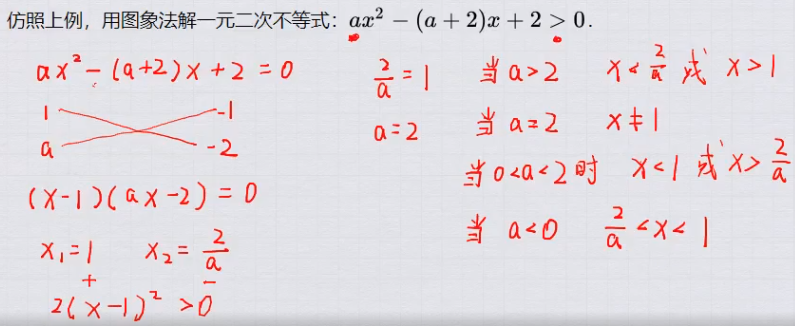 仿照上例，用图象法解一元二次不等式：ax² − (a + 2)x + 2 > 0.
ax² − (a+2)x + 2 = 0
1 −1
a −2
(x−1)(ax−2) = 0
x₁=1 x₂= 2/a
+ −
2(x−1)² >0
2/a = 1
a=2
当 a>2 x< 2/a 或 x>1
当 a=2 x≠1
当 0<a<2 时 x<1 或 x> 2/a
当 a<0 2/a <x< 1